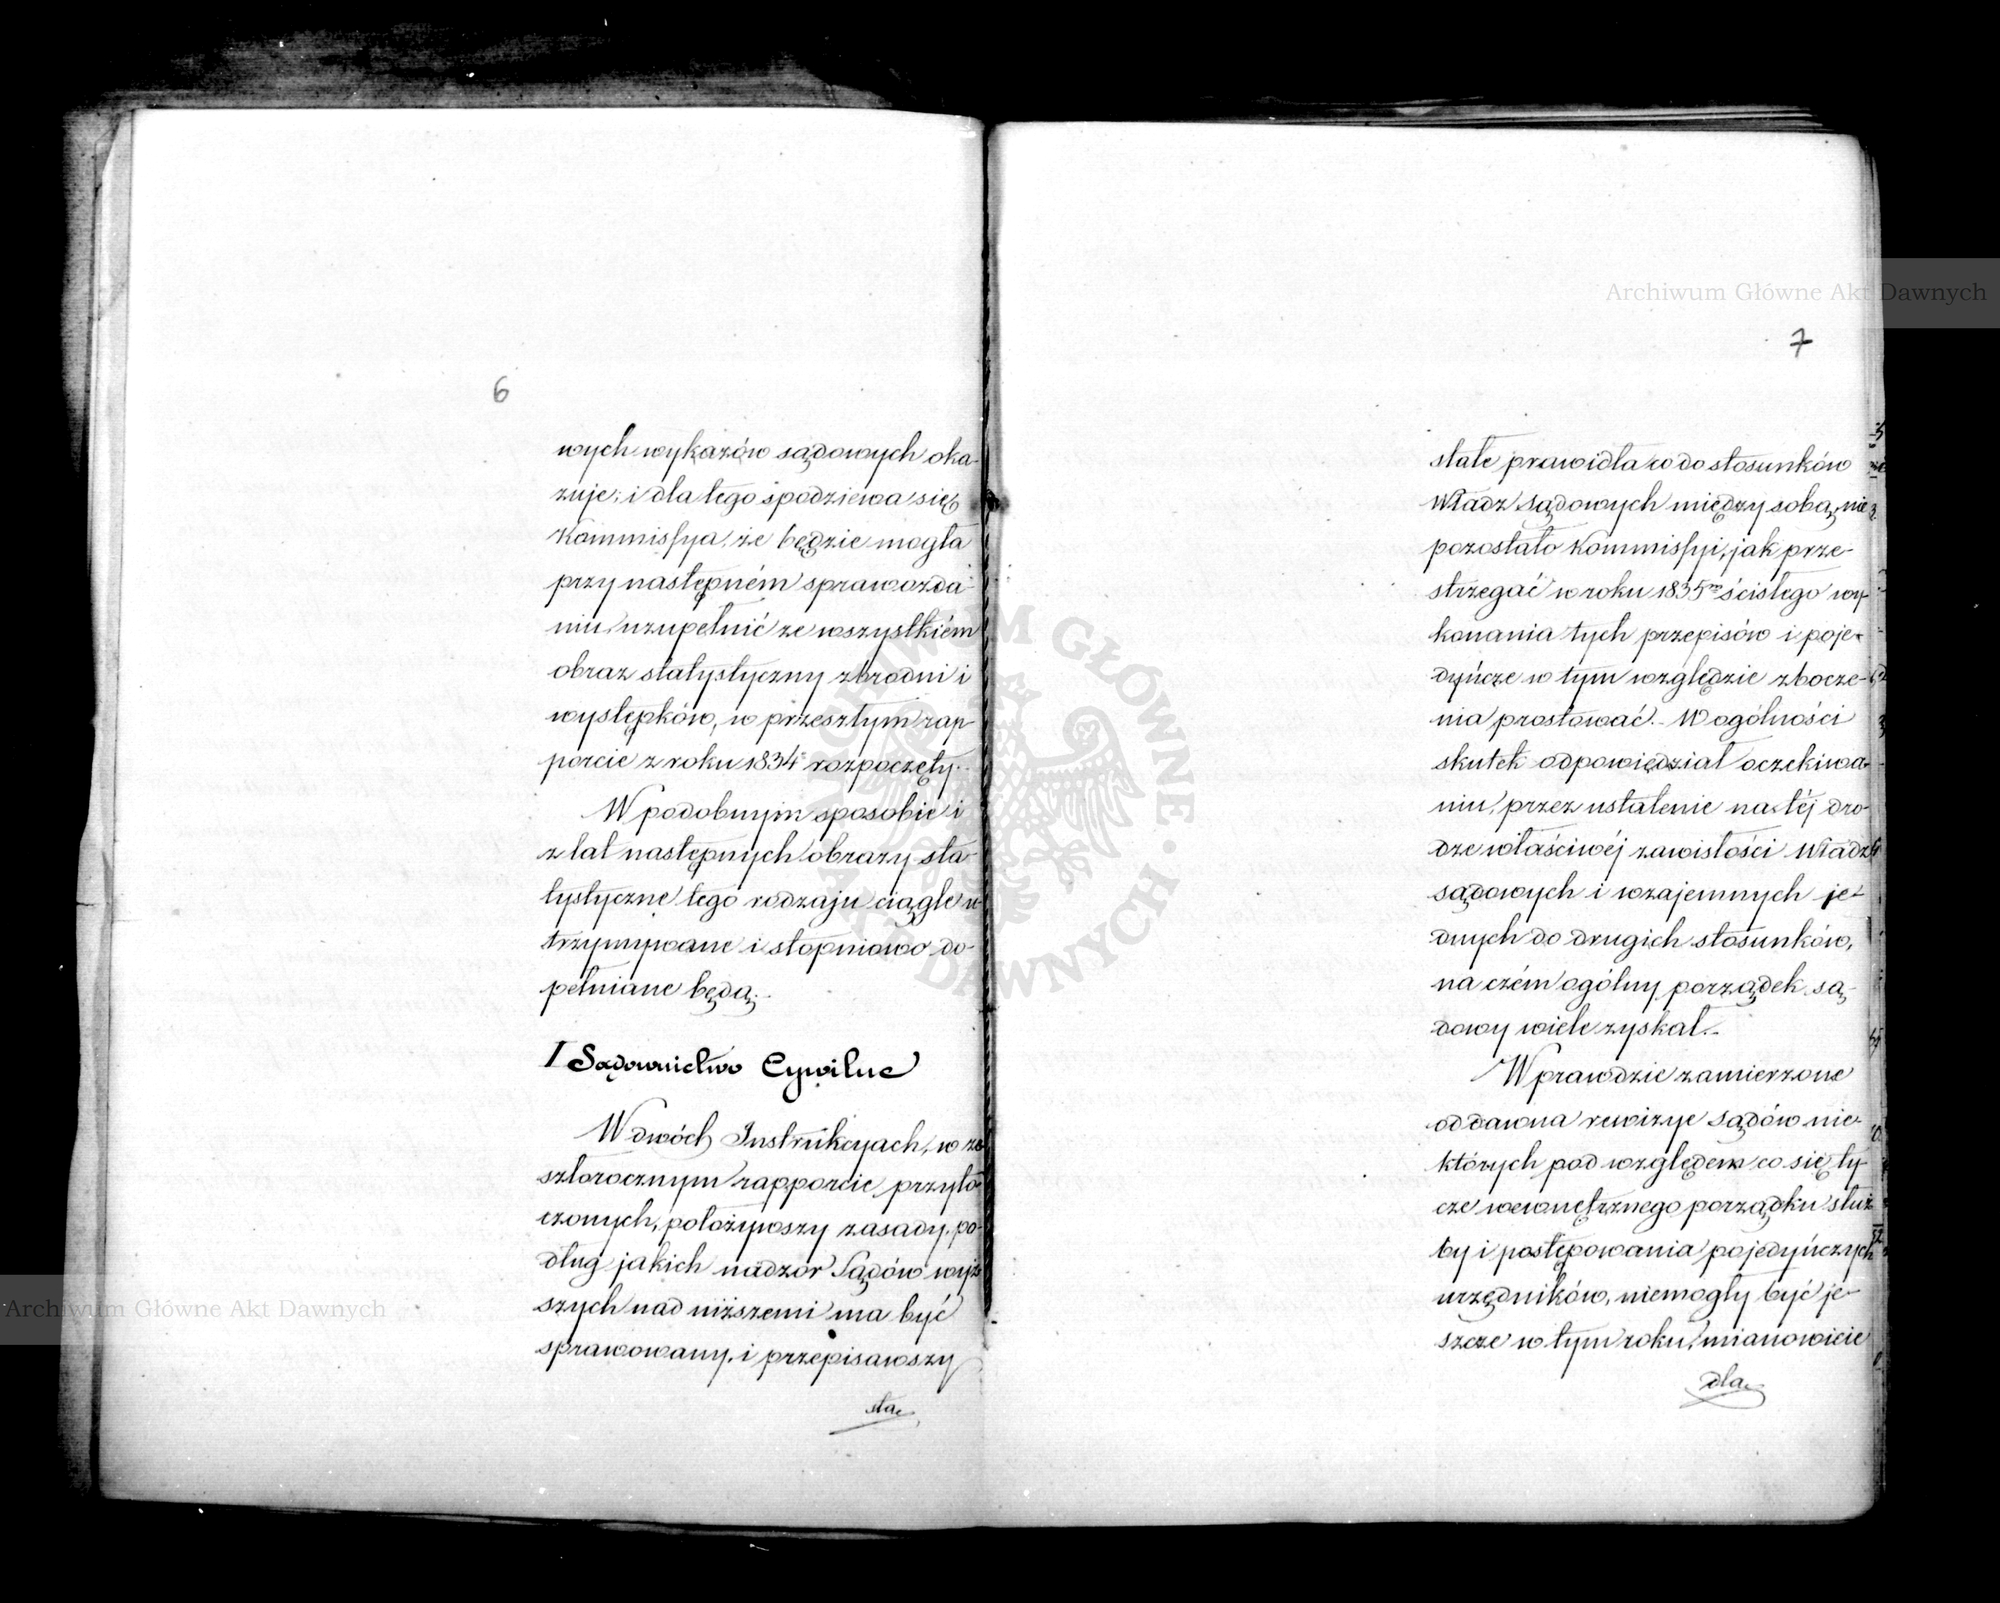 6
wych wykazów sądowych oka-
zuje; i dla tego spodziewa się
Kommissya, że będzie mogła
przy następném sprawozda-
niu, uzupełnić ze wszystkiém
obraz statystyczny zbrodni i
występków, w przeszłym rap-
porcie z roku 1834 rozpoczęty.
W podobnym sposobie i
z lat następnych obrazy sta-
tystyczne tego rodzaju ciągle u-
trzymywane i stopniowo do-
pełniane będą.
I Sądownictwo Cywilne
W dwóch Instrukcyach, w ze
szłorocznym rapporcie przyłą
czonych, położywszy zasady, po-
dług jakich nadzór Sądów wyż
szych nad niższemi ma być
sprawowany, i przepisawszy
sta
7
stałe prawidła co do stosunków
Władz sądowych między sobą, nie
pozostało Kommissyi, jak prze-
strzegać w roku 1835m ścisłego wy-
konania tych przepisów i poje-
dyńcze w tym względzie zbocze-
nia prostować. W ogólności
skutek odpowiedział oczekiwa-
niu, przez ustalenie na téj dro-
dze właściwéj zawisłości Władz
sądowych i wzajemnych je-
dnych do drugich stosunków,
na czém ogólny porządek są-
dowy wiele zyskał.
Wprawdzie zamierzone
oddawna rewizye sądów nie-
których pod względem co się ty
cze wewnętrznego porządku służ
by i postępowania pojedyńczych
urzędników, niemogły być je-
szcze w tym roku, mianowicie
dla
Archiwum Główne Akt Dawnych
Archiwum Główne Akt Dawnych
ARCHIWUM GŁÓWNE AKT DAWNYCH